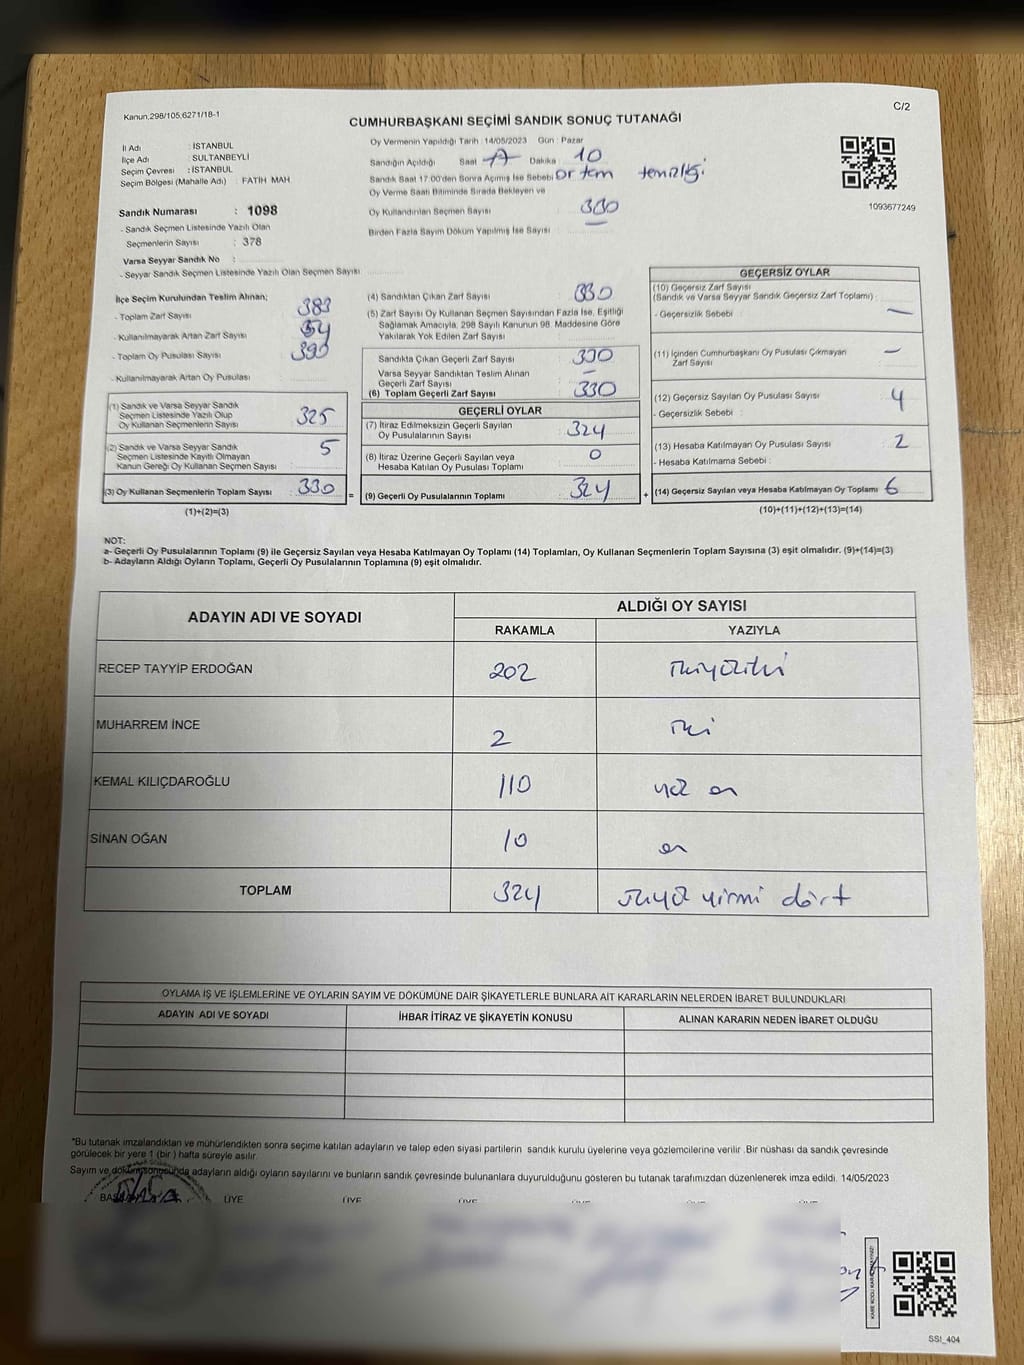 Kanun,298/105,6271/18-1
C/2
CUMHURBAŞKANI SEÇİMİ SANDIK SONUÇ TUTANAĞI
İl Adı : İSTANBUL
İlçe Adı : SULTANBEYLİ
Seçim Çevresi : İSTANBUL
Seçim Bölgesi (Mahalle Adı) : FATİH MAH
Sandık Numarası : 1098
- Sandık Seçmen Listesinde Yazılı Olan
Seçmenlerin Sayısı : 378
Varsa Seyyar Sandık No :
- Seyyar Sandık Seçmen Listesinde Yazılı Olan Seçmen Sayısı
Oy Vermenin Yapıldığı Tarih :14/05/2023 Gün : Pazar
Sandığın Açıldığı Saat Dakika : 10
Sandık Saat 17:00'den Sonra Açımış İse Sebebi ortam temizliği
Oy Verme Saati Bitiminde Sırada Bekleyen ve
Oy Kullandırılan Seçmen Sayısı 330
Birden Fazla Sayım Döküm Yapılmış İse Sayısı :
1093677249
İlçe Seçim Kurulundan Teslim Alınan;
- Toplam Zarf Sayısı 383
- Kullanılmayarak Artan Zarf Sayısı 54
- Toplam Oy Pusulası Sayısı 390
- Kullanılmayarak Artan Oy Pusulası
(1) Sandık ve Varsa Seyyar Sandık
Seçmen Listesinde Yazılı Olup
Oy Kullanan Seçmenlerin Sayısı 325
(2) Sandık ve Varsa Seyyar Sandık
Seçmen Listesinde Kayıtlı Olmayan
Kanun Gereği Oy Kullanan Seçmen Sayısı 5
(3) Oy Kullanan Seçmenlerin Toplam Sayısı 330 =
(1)+(2)=(3)
(4) Sandıktan Çıkan Zarf Sayısı 330
(5) Zarf Sayısı Oy Kullanan Seçmen Sayısından Fazla İse, Eşitliği
Sağlamak Amacıyla, 298 Sayılı Kanunun 98. Maddesine Göre
Yakılarak Yok Edilen Zarf Sayısı
Sandıkta Çıkan Geçerli Zarf Sayısı 330
Varsa Seyyar Sandıktan Teslim Alınan
Geçerli Zarf Sayısı -
(6) Toplam Geçerli Zarf Sayısı 330
GEÇERLİ OYLAR
(7) İtiraz Edilmeksizin Geçerli Sayılan
Oy Pusulalarının Sayısı 324
(8) İtiraz Üzerine Geçerli Sayılan veya
Hesaba Katılan Oy Pusulası Toplamı 0
(9) Geçerli Oy Pusulalarının Toplamı 324 +
GEÇERSİZ OYLAR
(10) Geçersiz Zarf Sayısı
(Sandık ve Varsa Seyyar Sandık Geçersiz Zarf Toplamı) :
- Geçersizlik Sebebi : -
(11) İçinden Cumhurbaşkanı Oy Pusulası Çıkmayan
Zarf Sayısı -
(12) Geçersiz Sayılan Oy Pusulası Sayısı 4
- Geçersizlik Sebebi :
(13) Hesaba Katılmayan Oy Pusulası Sayısı 2
- Hesaba Katılmama Sebebi :
(14) Geçersiz Sayılan veya Hesaba Katılmayan Oy Toplamı 6
(10)+(11)+(12)+(13)=(14)
NOT:
a- Geçerli Oy Pusulalarının Toplamı (9) ile Geçersiz Sayılan veya Hesaba Katılmayan Oy Toplamı (14) Toplamları, Oy Kullanan Seçmenlerin Toplam Sayısına (3) eşit olmalıdır. (9)+(14)=(3)
b- Adayların Aldığı Oyların Toplamı, Geçerli Oy Pusulalarının Toplamına (9) eşit olmalıdır.
ADAYIN ADI VE SOYADI ALDIĞI OY SAYISI
RAKAMLA YAZIYLA
RECEP TAYYİP ERDOĞAN 202 ikiyüziki
MUHARREM İNCE 2 iki
KEMAL KILIÇDAROĞLU 110 yüz on
SİNAN OĞAN 10 on
TOPLAM 324 üçyüz yirmi dört
OYLAMA İŞ VE İŞLEMLERİNE VE OYLARIN SAYIM VE DÖKÜMÜNE DAİR ŞİKAYETLERLE BUNLARA AİT KARARLARIN NELERDEN İBARET BULUNDUKLARI
ADAYIN ADI VE SOYADI İHBAR İTİRAZ VE ŞİKAYETİN KONUSU ALINAN KARARIN NEDEN İBARET OLDUĞU
*Bu tutanak imzalandıktan ve mühürlendikten sonra seçime katılan adayların ve talep eden siyasi partilerin sandık kurulu üyelerine veya gözlemcilerine verilir .Bir nüshası da sandık çevresinde
görülecek bir yere 1 (bir ) hafta süreyle asılır.
Sayım ve döküm sonucunda adayların aldığı oyların sayılarını ve bunların sandık çevresinde bulunanlara duyurulduğunu gösteren bu tutanak tarafımızdan düzenlenerek imza edildi. 14/05/2023
BAŞKAN ÜYE ÜYE ÜYE ÜYE ÜYE
SSİ_404